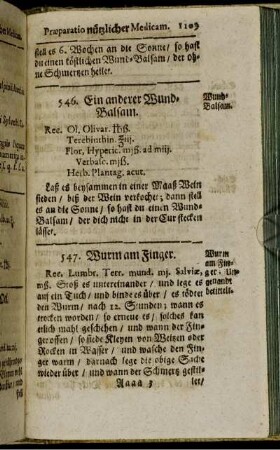 Præparatio nützlicher Medicam. 1109
stell es 6. Wochen an die Sonne / so hast
du einen köstlichen Wund-Balsam / der oh-
ne Schmertzen heilet.
546. Ein anderer Wund-
Balsam.
Wund-
Balsam.
Rec. Ol. Olivar. ℔ß.
Terebinthin. ℥iij.
Flor. Hyperic. mß. ad miij.
Verbasc. mß.
Herb. Plantag. acut.
Laß es beysammen in einer Maaß Wein
sieden / biß der Wein verkochet; dann stell
es an die Sonne / so hast du einen Wund-
Balsam / der dich nicht in der Cur stecken
lässet.
547. Wurm am Finger.
Wurm
am Fin-
ger
genandt
betittelt.
Rec. Lumbr. Terr. mund. mj. Salviæ,
mß. Stoß es untereinander / und lege es
auf ein Tuch / und binde es über / es tödtet
den Wurm / nach 12. Stunden; wann es
trocken worden / so erneue es / solches kan
etlich mahl geschehen / und wann der Fin-
ger offen / so siede Kleyen von Weitzen oder
Rocken in Wasser / und wasche den Fin-
ger warm / darnach lege die obige Sache
wieder über / und wann der Schmertz gestil-
Aaaa 3 let /